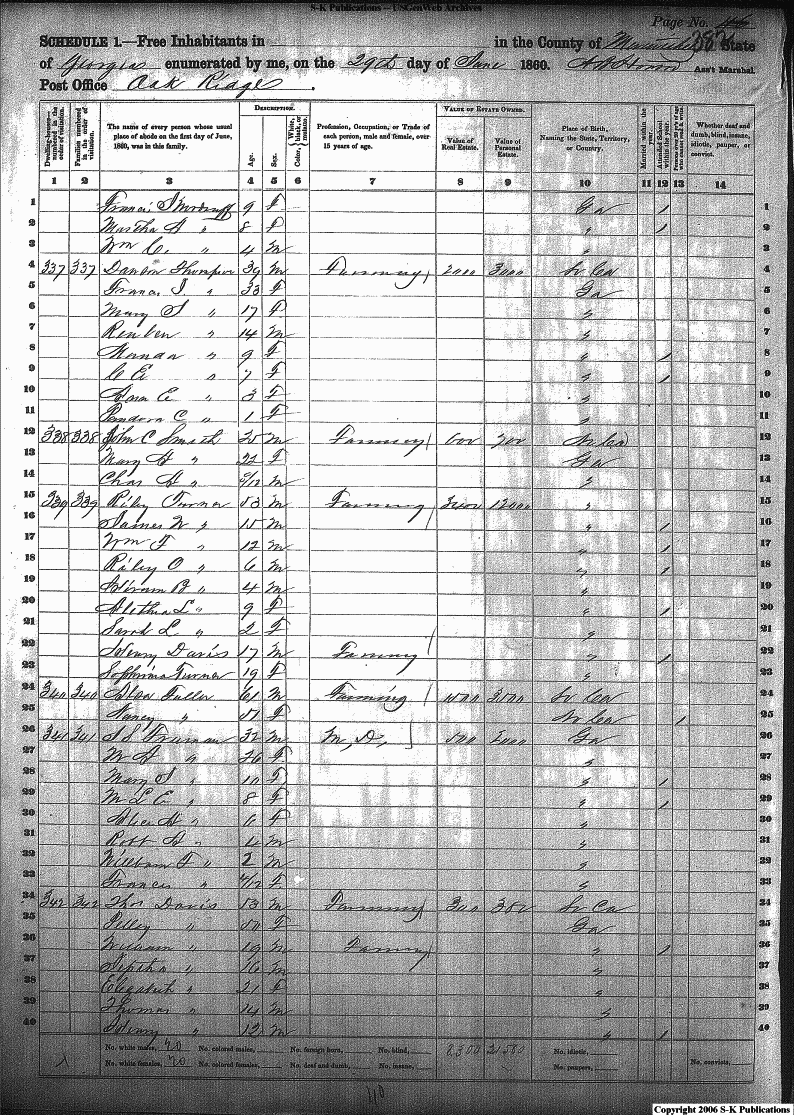 S-K Publications -- USGenWeb Archives
Page No.
SCHEDULE 1.—Free Inhabitants in in the County of 382 State
of Georgia enumerated by me, on the 29th day of June 1860. Ass't Marshal.
Post Office Oak Ridge
DESCRIPTION. VALUE OF ESTATE OWNED.
Dwelling-houses—numbered in the order of visitation. Families numbered in the order of visitation. The name of every person whose usual place of abode on the first day of June, 1860, was in this family. Age. Sex. Color, White, black, or mulatto. Profession, Occupation, or Trade of each person, male and female, over 15 years of age. Value of Real Estate. Value of Personal Estate. Place of Birth, Naming the State, Territory, or Country. Married within the year. Attended School within the year. Persons over 20 y'rs of age who cannot read & write. Whether deaf and dumb, blind, insane, idiotic, pauper, or convict.
1 2 3 4 5 6 7 8 9 10 11 12 13 14
1 Francis J 9 F Ga / 1
2 Martha A " 8 F " / 2
3 Wm C. " 4 M " 3
4 337 337 Thompson 39 M Farming 2000 3000 So Ca 4
5 Frances J " 33 F Ga 5
6 Mary S " 17 F " 6
7 Reuben " 14 M " 7
8 " 9 F " / 8
9 C E " 7 F " / 9
10 E " 3 F " 10
11 Pandora C " 1 F " 11
12 338 338 John C Smith 25 M Farming 600 200 No Ca 12
13 Mary A " 22 F Ga 13
14 Chas H " /12 M " 14
15 339 339 Riley Turner 53 M Farming 3400 12000 " 15
16 James W " 15 M " / 16
17 Wm F " 12 M " / 17
18 Riley O " 6 M " / 18
19 Hiram B " 4 M " 19
20 Alethea L " 9 F " / 20
21 Sarah L " 2 F " 21
22 Henry Davis 17 M Farming " / 22
23 Turner 19 F " 23
24 340 340 Fuller 61 M Farming 3500 So Ca 24
25 Nancy " 57 F No Ca / 25
26 341 341 32 M M, D, 500 2000 Ga 26
27 M A " 26 F " 27
28 Mary S " 10 F " / 28
29 M L E " 8 F " / 29
30 Alice A " 6 F " 30
31 Robt " 4 M " 31
32 William T " 2 M " 32
33 Frances " /12 F " 33
34 342 342 Thos Davis 53 M Farming 300 So Ca 34
35 " 50 F Ga 35
36 William " 19 M Farming " / 36
37 Jeptha " 16 M " 37
38 Elizabeth " 21 F " 38
39 Thomas " 14 M " 39
40 Henry " 12 M " / 40
No. white males, 20 No. colored males, No. foreign born, No. blind, 8300 No. idiotic,
No. white females, 20 No. colored females, No. deaf and dumb, No. insane, No. paupers, No. convicts,
Copyright 2006 S-K Publications